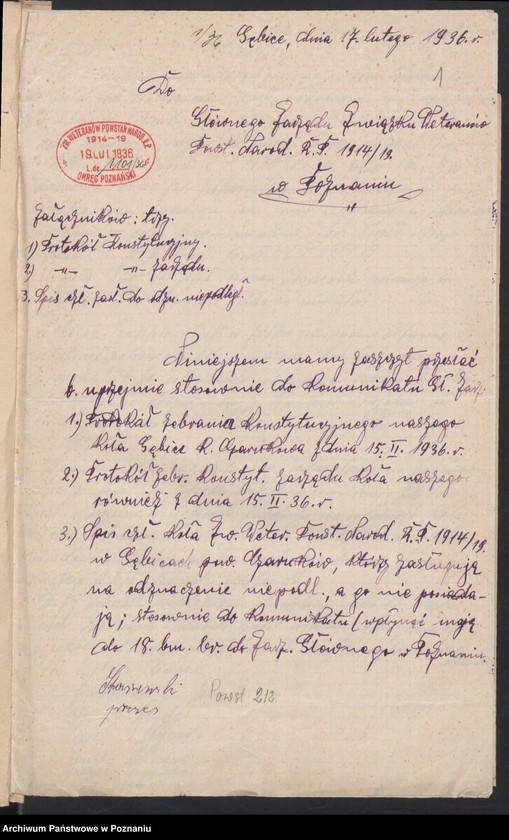 1/36 Gębice, dnia 17. lutego 1936. r.
1
Do
Głównego Zarządu Związku Weteranów
Powst. Narod. R. P. 1914/19.
w Poznaniu
ZW. WETERANÓW POWSTAŃ NAROD. R.P.
1914-19
19 LUT 1936
L.dz. 1101/36
OKRĘG POZNAŃSKI
Załączników: trzy.
1) Protokół Konstytucyjny.
2) -„- -„- Zarządu.
3. Spis czł. zasł. do odzn. niepodległ.
Niniejszem mamy zaszczyt przesłać
b. uprzejmie stosownie do Komunikatu Gł. Zarz.
1.) Protokół zebrania Konstytucyjnego naszego
Koła Gębice k. Czarnkowa z dnia 15. II. 1936. r.
2.) Protokół Zebr. Konstyt. Zarządu Koła naszego
również z dnia 15. II. 36. r.
3.) Spis czł. Koła Zw. Weter. Powst. Narod. R. P. 1914/19.
w Gębicach pow. Czarnków, którzy zasługują
na odznaczenie niepodl., a go nie posiada-
ją; stosownie do Komunikatu (wpłynąć mają
do 18. bm. br. do Zarz. Głównego w Poznaniu.
prezes
Powst 212
Archiwum Państwowe w Poznaniu